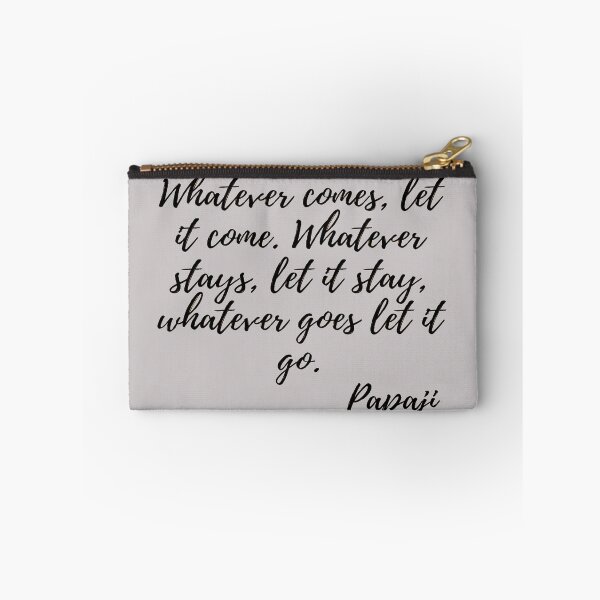 Whatever comes, let
it come. Whatever
stays, let it stay,
whatever goes let it
go.
Papaji